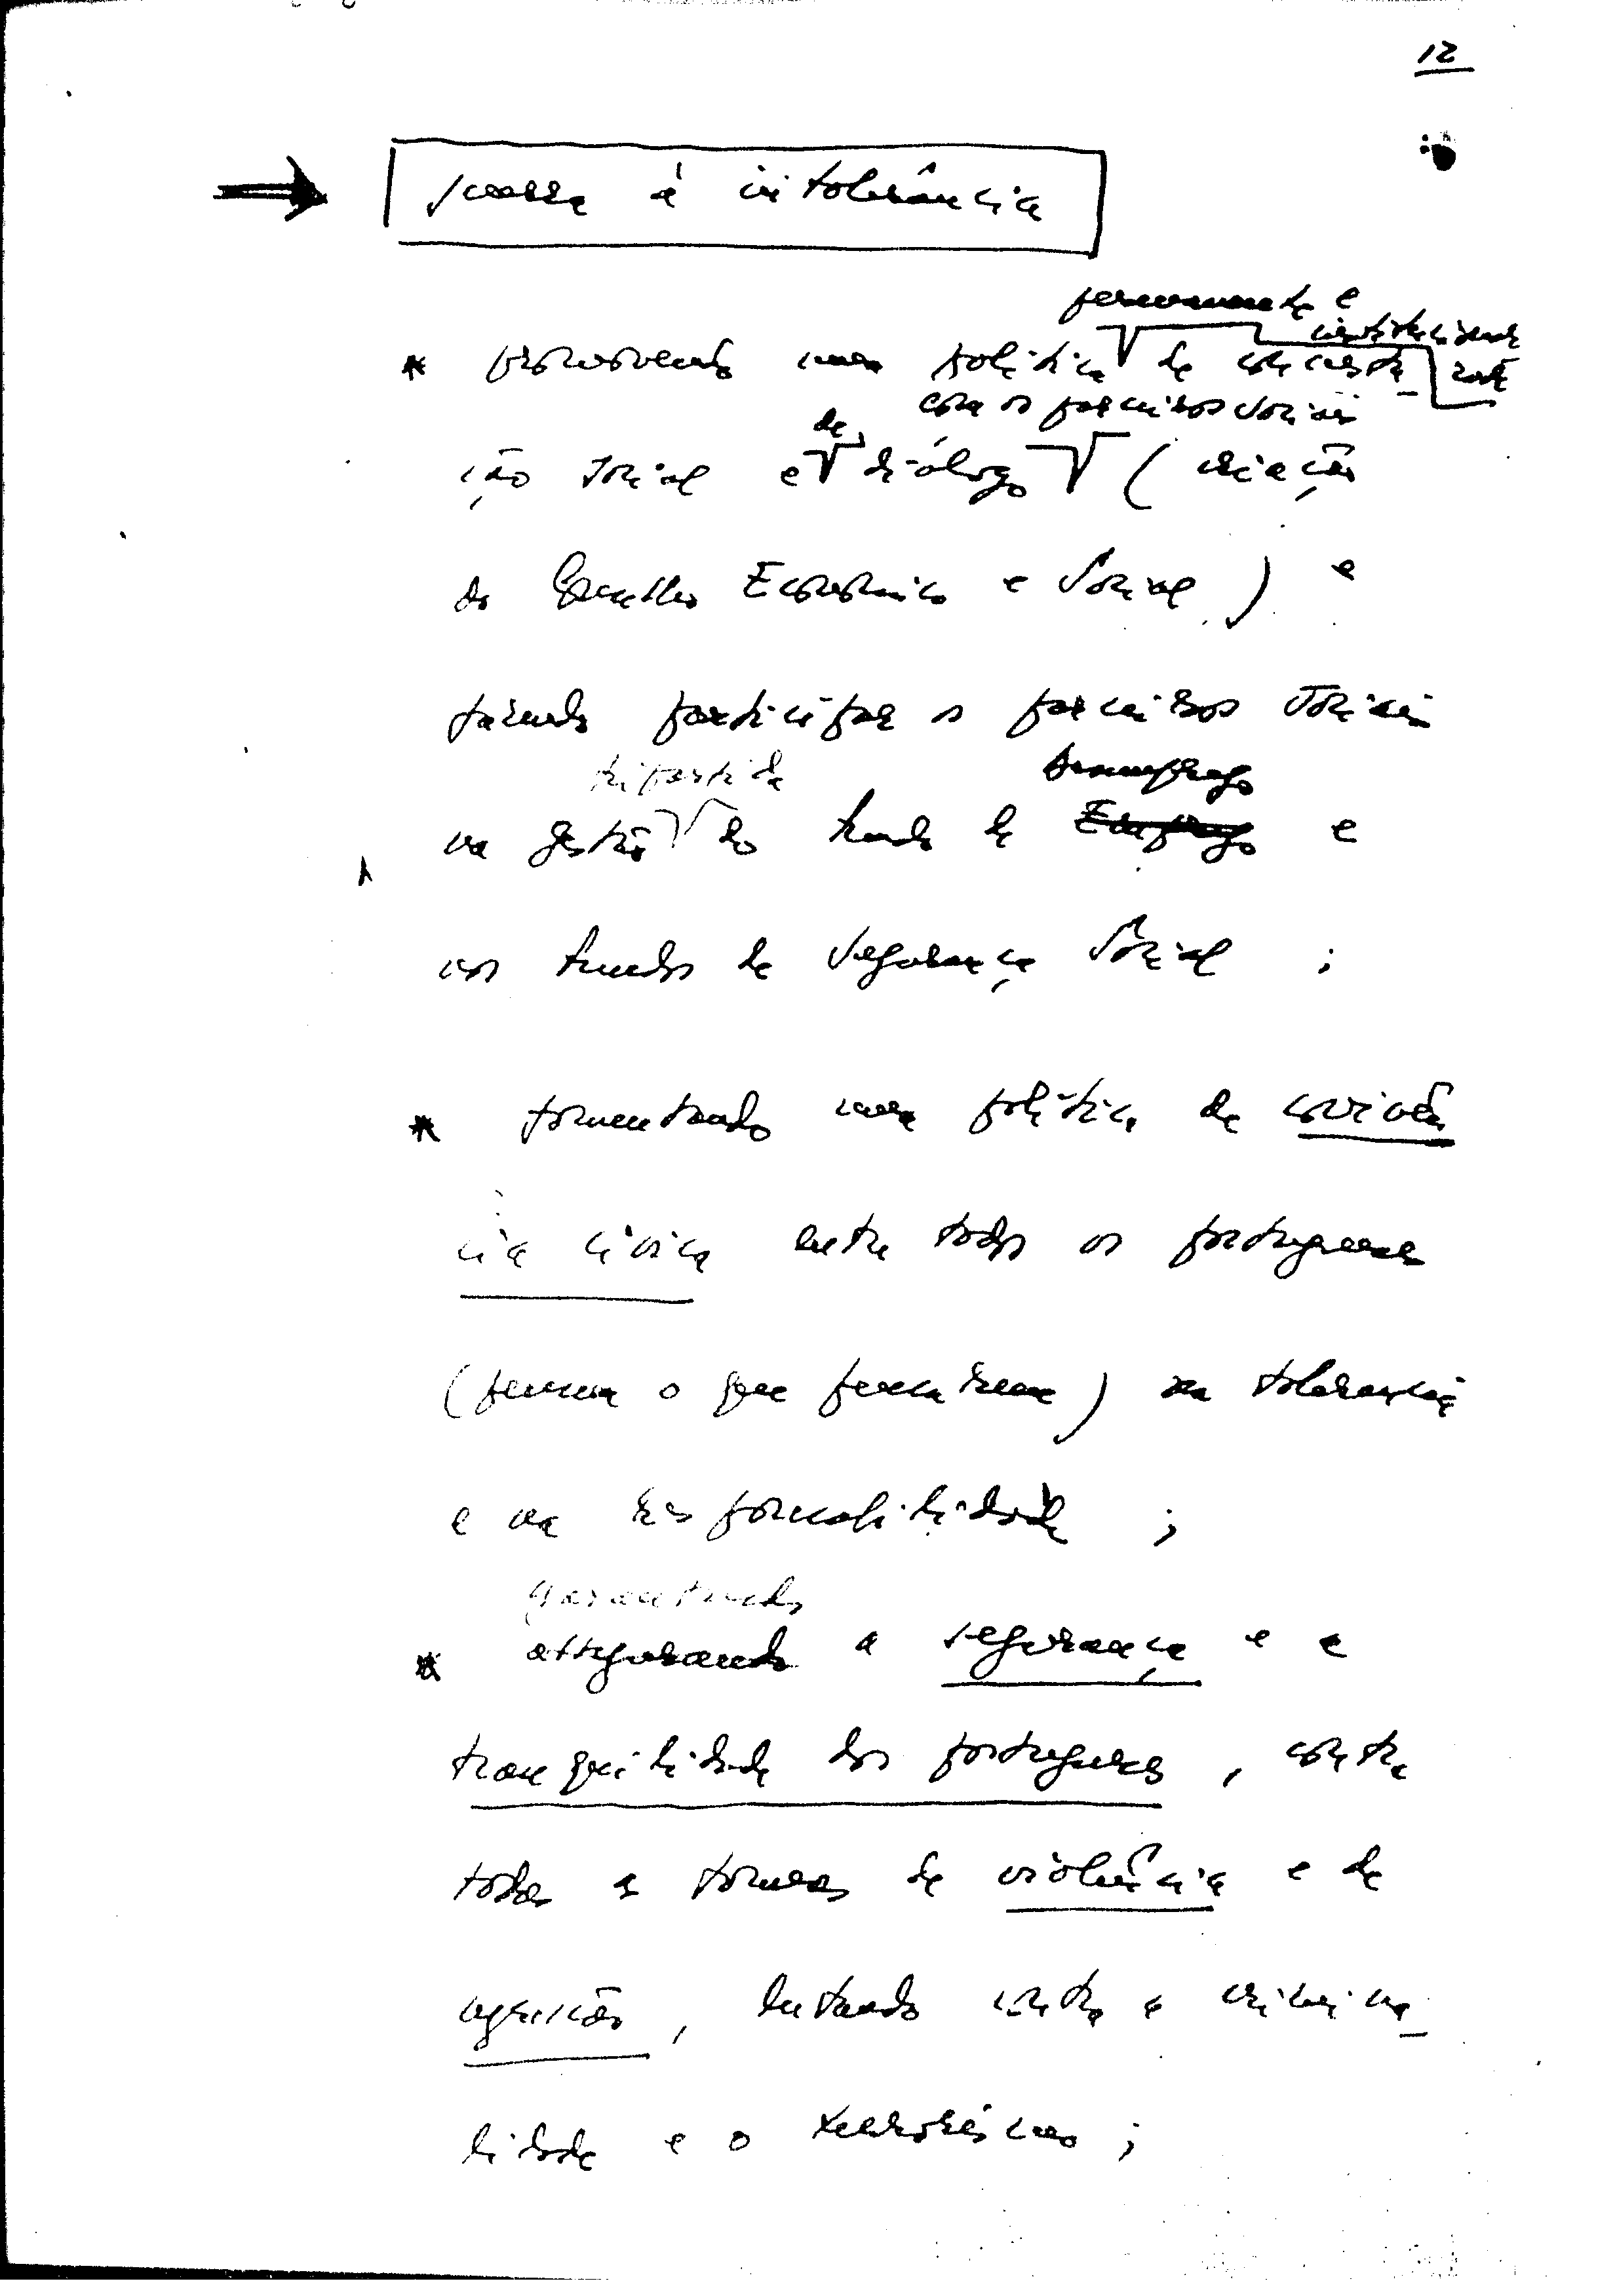 12
guerra à intolerância
permanente e
institucionali
zada
* promovendo uma política de concerta_
com os parceiros sociais
de
ção social e diálogo (criação
do Conselho Económico e Social) e
fazendo participar os parceiros sociais
tripartida
desemprego
na gestão do fundo de Emprego e
nos fundos de Segurança Social ;
* fomentando uma política de convivên
cia cívica entre todos os portugueses
(pensem o que pensarem) na tolerância
e na responsabilidade ;
garantindo
* assegurando a segurança e a
tranquilidade dos portugueses, contra
todas as formas de violência e de
agressão, lutando contra a crimina_
lidade e o terrorismo ;